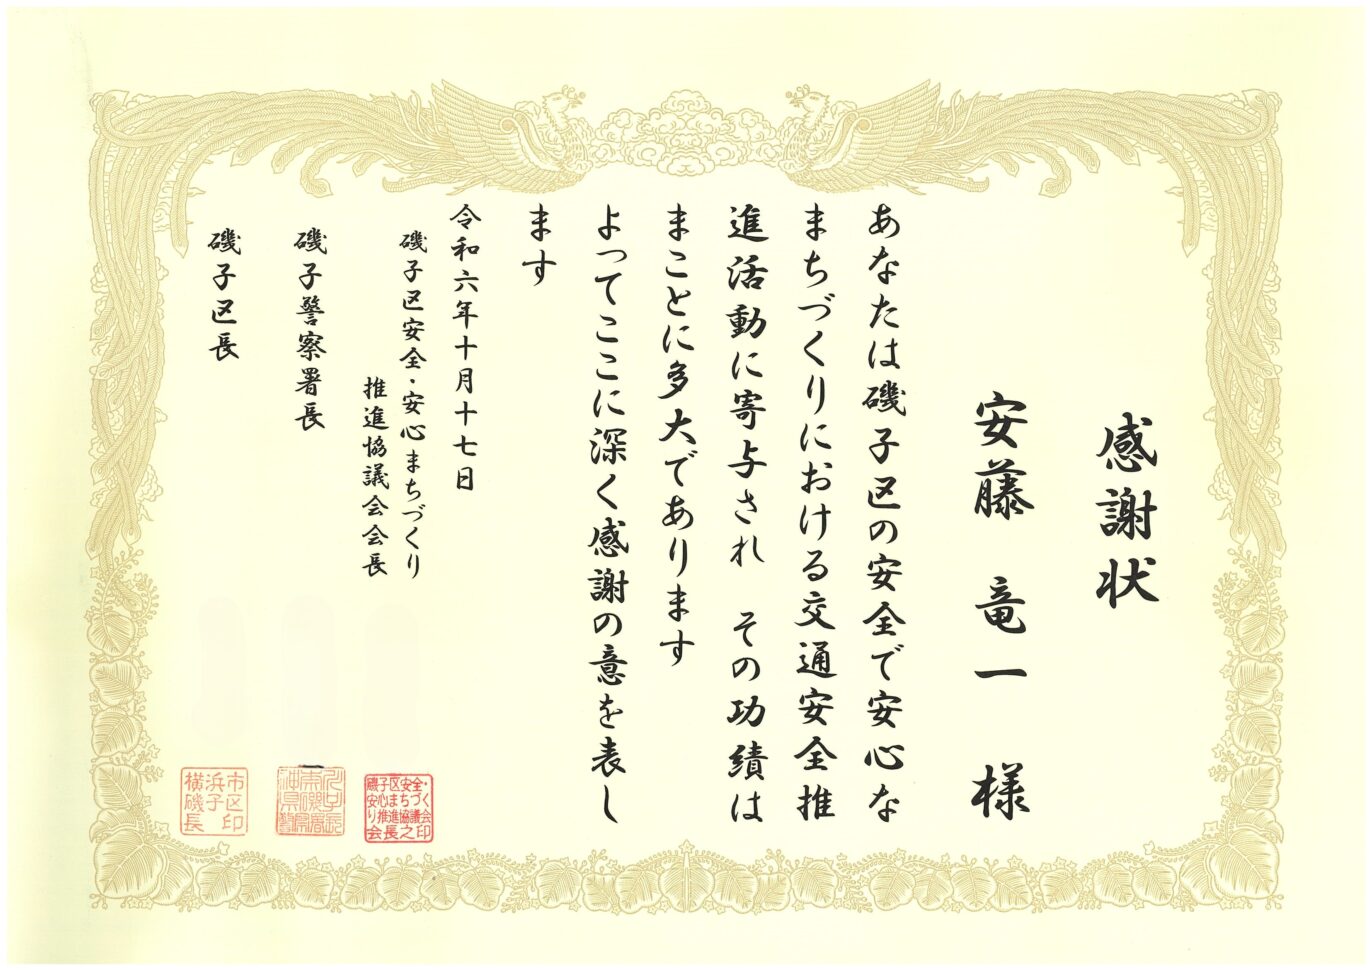 感謝状
安藤 竜一 様
あなたは磯子区の安全で安心な
まちづくりにおける交通安全推
進活動に寄与され その功績は
まことに多大であります
よってここに深く感謝の意を表し
ます
令和六年十月十七日
磯子区安全・安心まちづくり
推進協議会会長
磯子警察署長
磯子区長
磯子区安全・安心まちづくり推進協議会長之印
横浜市磯子区長印